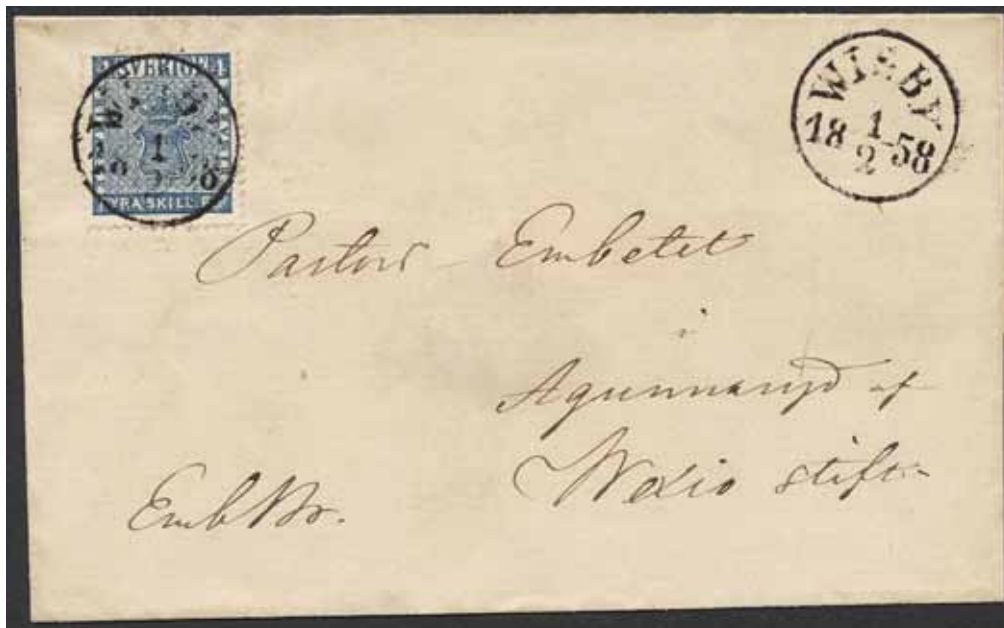 SVERIGE
FYRA SKILL. B
WISBY
1
18 58
2
Pastors Embetet
i
Agunnaryd af
Wexio stift
EmbBr.